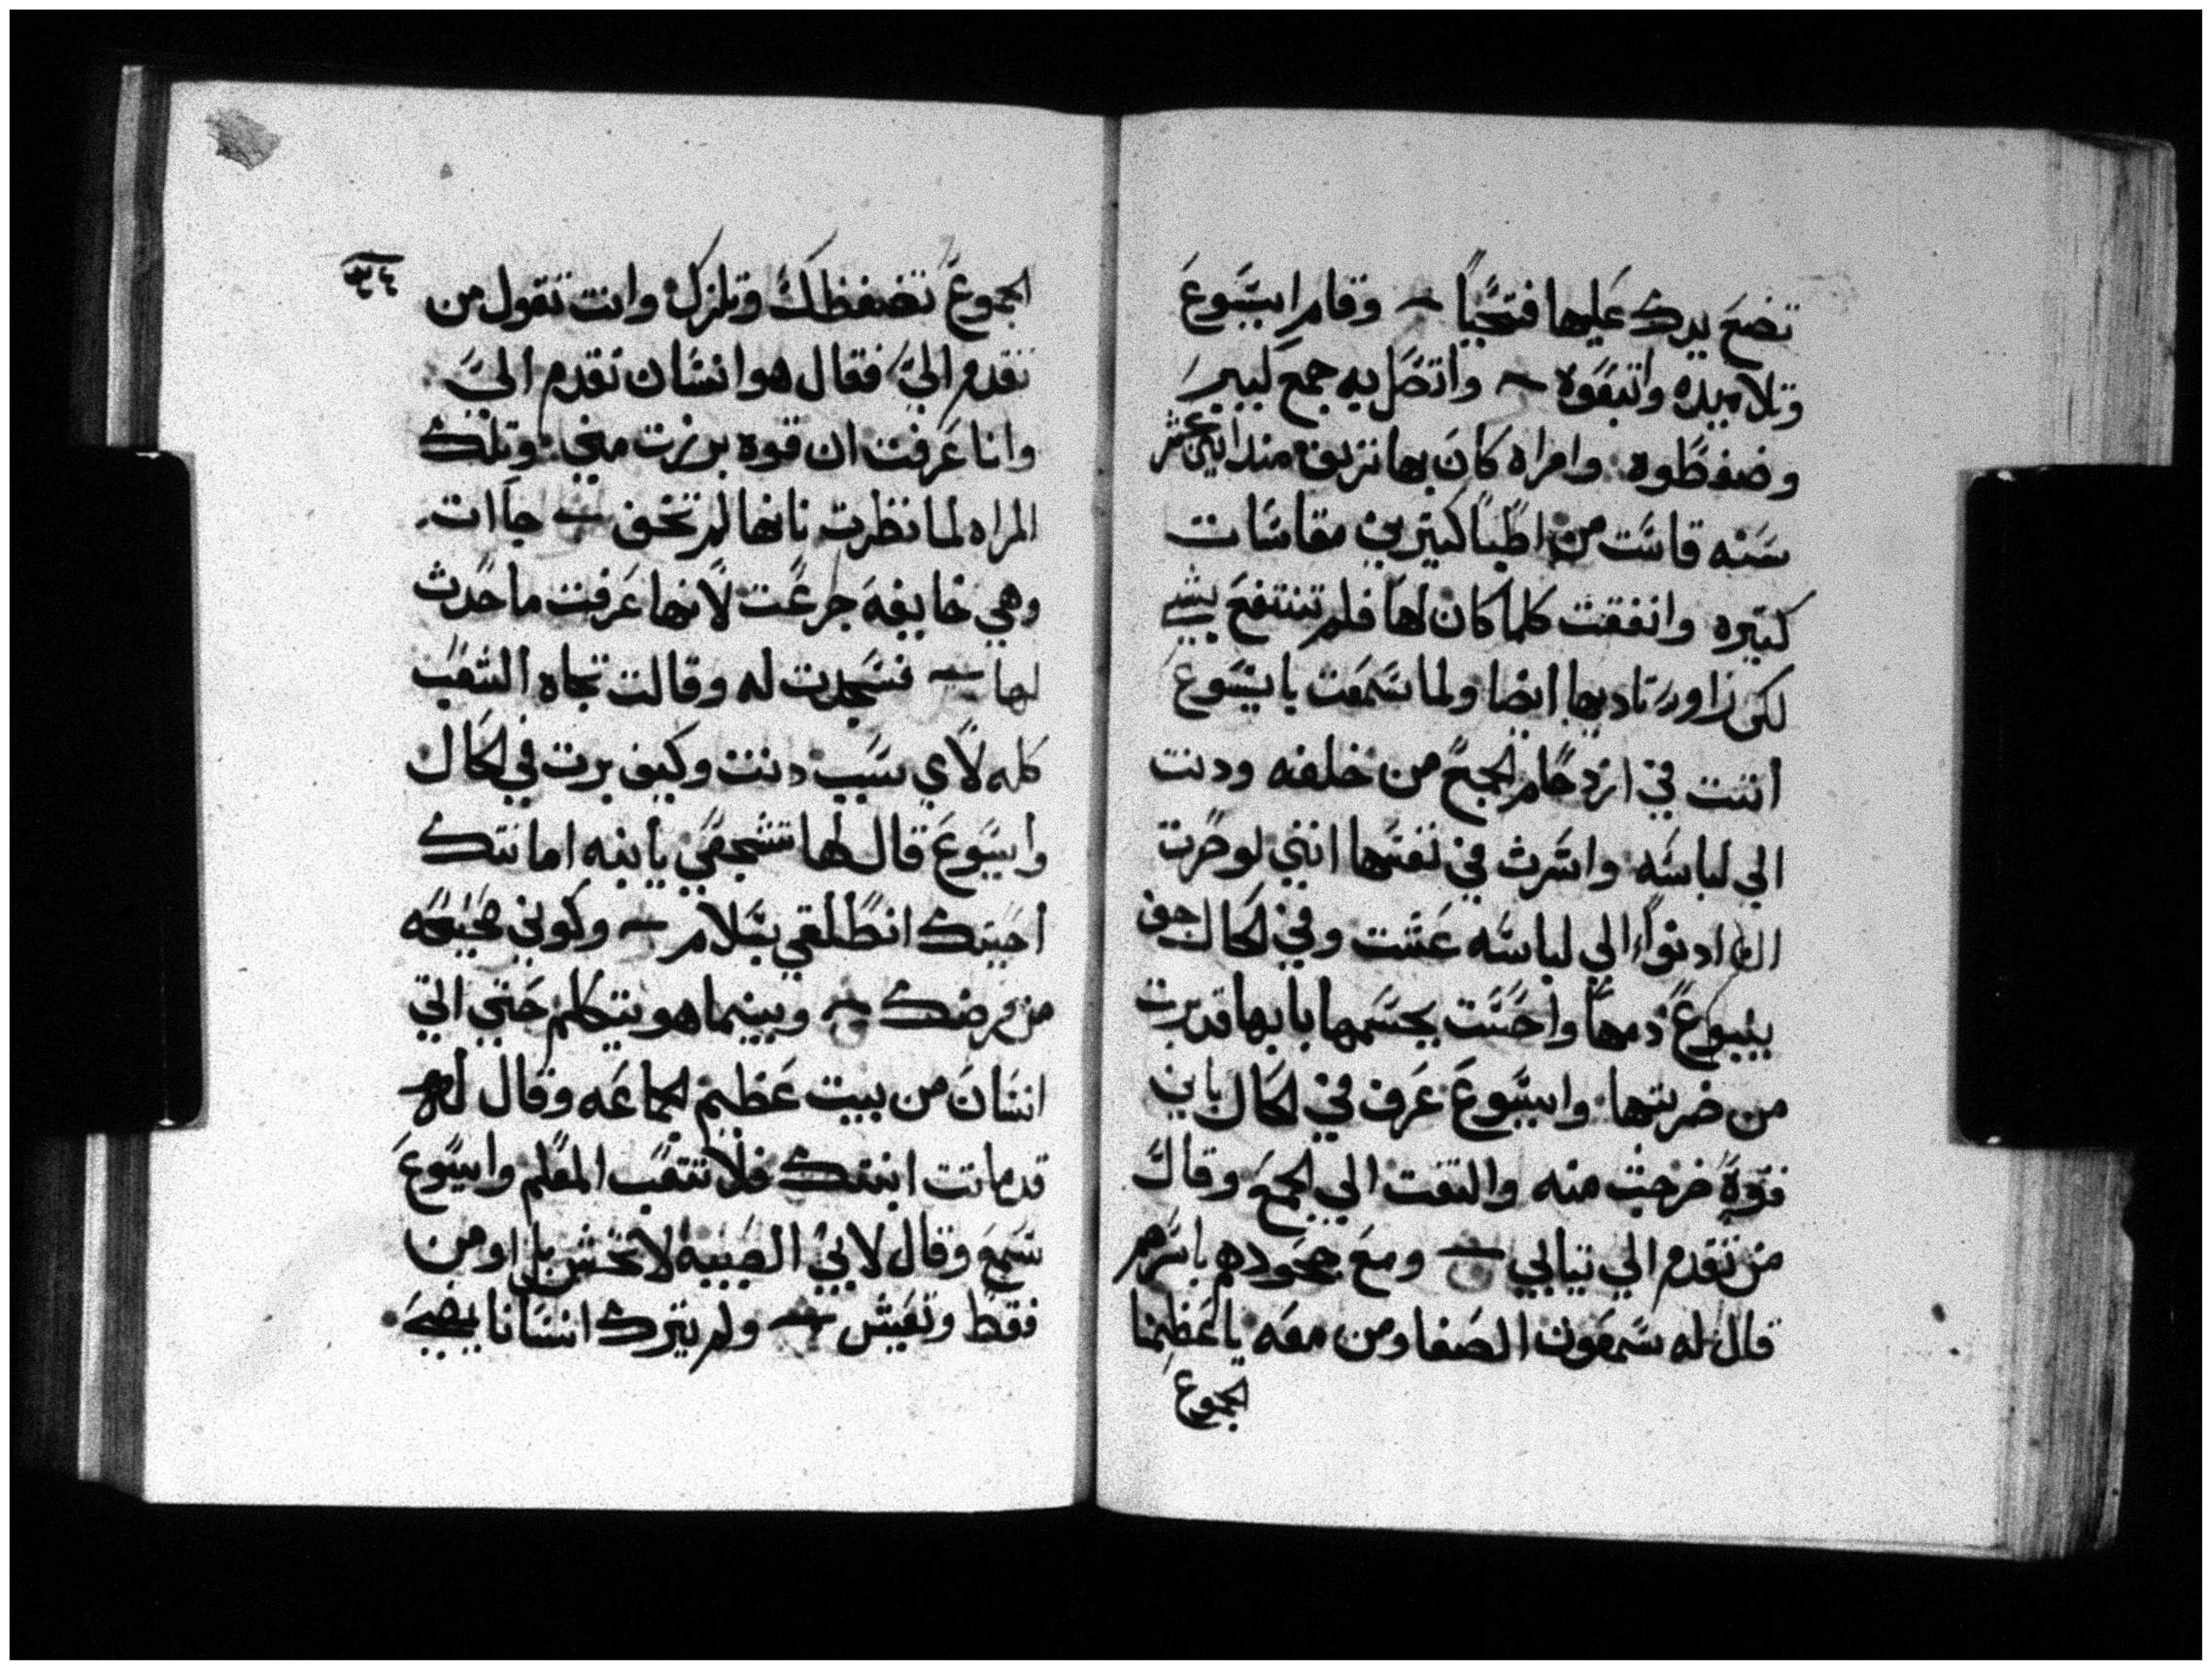 تضع يدك عليها فتحيا وقام ايسوع
وتلاميذه واتبعوه واتصل به جمع كبير
وضغطوه وامراه كان بها نزيف منذ اثني عشر
سنه قاست من اطبا كثيرين مقاسات
كثيره وانفقت كلما كان لها فلم تنتفع بشي
لكن زاد ... بها ايضا ولما سمعت بايسوع
اتت في ازدحام الجمع من خلفه ودنت
الي لباسه واسرت في نفسها انني لو صرت
ان ادنوا الي لباسه عشت وفي الحال جف
ينبوع دمها واحست بجسمها بانها قد برت
من ضربتها وايسوع عرف في الحال بان
قوة خرجت منه والتفت الي الجمع وقال
من تقدم الي تيابي ومع جحودهم باسرهم
قال له سمعون الصفا ومن معه يا عظيمنا
الجموع
الجموع تضغطك وتلزك وانت تقول من
تقدم الي فقال هو انسان تقدم الي
وانا عرفت ان قوه برزت مني وتلك
المراه لما نظرت بانها لم تخف جاات
وهي خايفه جزعت لانها عرفت ما حدث
لها فسجدت له وقالت تجاه الشعب
كله لاي سبب دنت وكيف برت في الحال
وايسوع قال لها تشجعي يابنه امانتك
احيتك انطلقي بسلام وكوني صحيحه
من مرضك وبينما هو يتكلم حتي اتي
انسان من بيت عظيم الجماعه وقال له
قد ماتت ابنتك فلا تتعب المعلم وايسوع
سمع وقال لابي الصبيه لا تخش بل اومن
فقط وتعيش ولم يترك انسانا يمضي